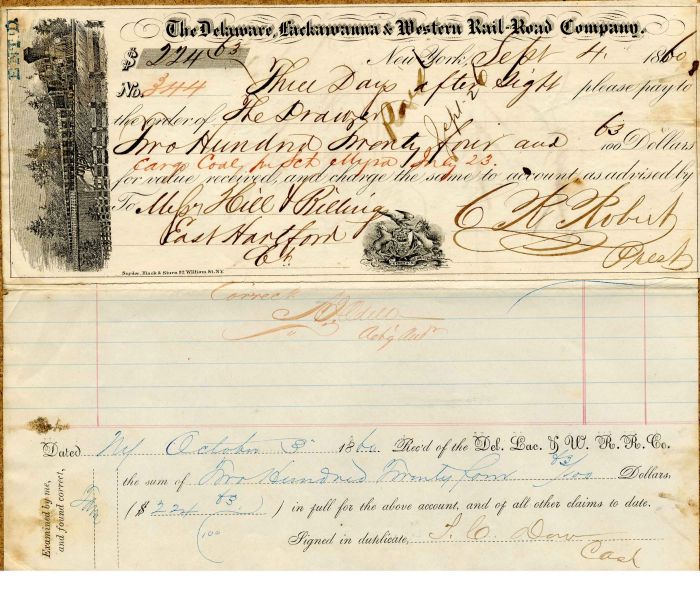 The Delaware, Lackawanna & Western Rail-Road Company.
$ 224 63
New York, Sept 4 1860
No. 344 Three Days after Sight please pay to
the order of The Drawer
Paid Sept. 26
Two Hundred Twenty four and 63/100 Dollars
Cargo Coal, pr Sch Myra Aug 23.
for value received, and charge the same to account, as advised by
To Messrs Hill & Riding
C R Robert
East Hartford
Prest
Ct.
Snyder, Black & Sturn 92 William St. N.Y.
Correct
Dated NY October 3 1860. Rec'd of the Del. Lac. & W. R. R. Co.
the sum of Two Hundred Twenty four 63/100 Dollars.
($ 224 63/100) in full for the above account, and of all other claims to date.
Signed in duplicate, Dow
Cash
Examined by me,
and found correct,